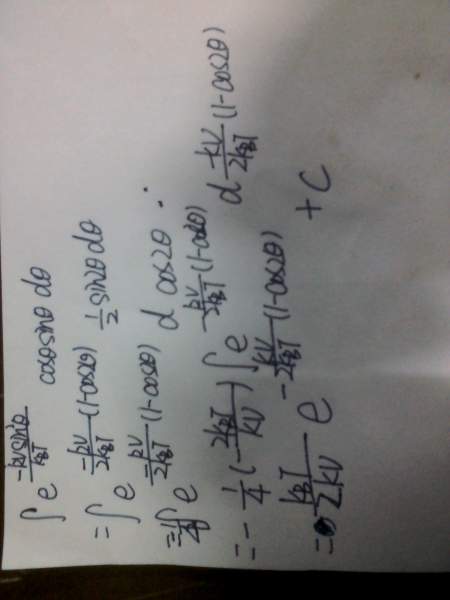 ∫ e^{-kV sin²θ / k_BT} cosθ sinθ dθ
= ∫ e^{-kV/2k_BT (1-cos2θ)} ½ sin2θ dθ
= -¼ ∫ e^{-kV/2k_BT (1-cos2θ)} d cos2θ
= -¼ (-2k_BT/kV) ∫ e^{-kV/2k_BT (1-cos2θ)} d -kV/2k_BT (1-cos2θ)
= k_BT/2kV e^{-kV/2k_BT (1-cos2θ)} + C